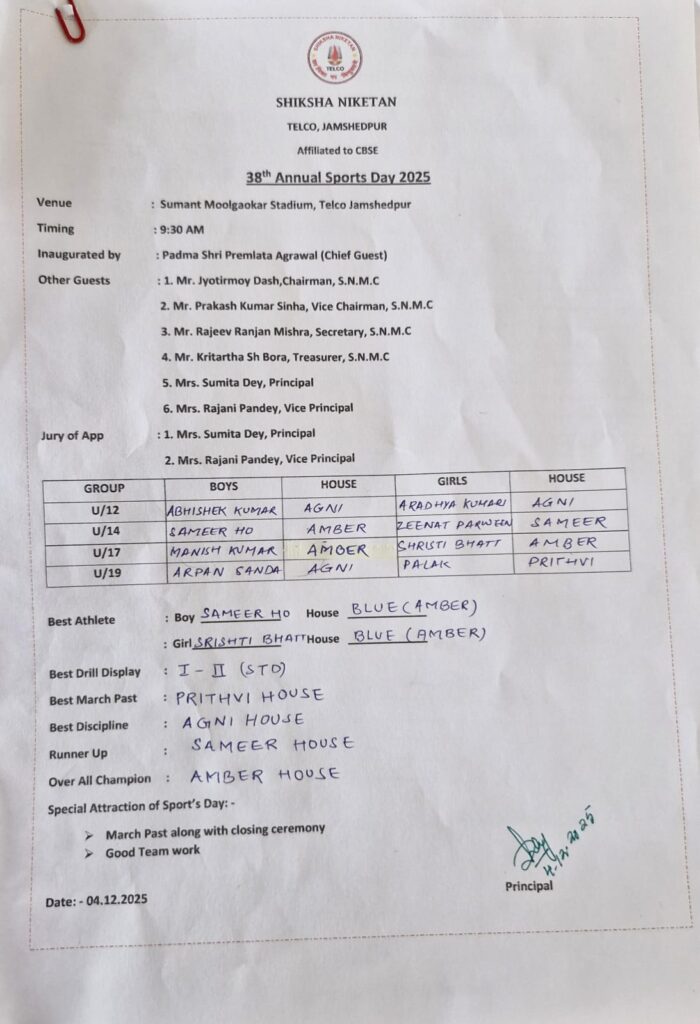 SHIKSHA NIKETAN
TELCO
SHIKSHA NIKETAN
TELCO, JAMSHEDPUR
Affiliated to CBSE
38th Annual Sports Day 2025
Venue : Sumant Moolgaokar Stadium, Telco Jamshedpur
Timing : 9:30 AM
Inaugurated by : Padma Shri Premlata Agrawal (Chief Guest)
Other Guests : 1. Mr. Jyotirmoy Dash,Chairman, S.N.M.C
2. Mr. Prakash Kumar Sinha, Vice Chairman, S.N.M.C
3. Mr. Rajeev Ranjan Mishra, Secretary, S.N.M.C
4. Mr. Kritartha Sh Bora, Treasurer, S.N.M.C
5. Mrs. Sumita Dey, Principal
6. Mrs. Rajani Pandey, Vice Principal
Jury of App : 1. Mrs. Sumita Dey, Principal
2. Mrs. Rajani Pandey, Vice Principal
GROUP BOYS HOUSE GIRLS HOUSE
U/12 ABHISHEK KUMAR AGNI ARADHYA KUMARI AGNI
U/14 SAMEER HO AMBER ZEENAT PARWEEN SAMEER
U/17 MANISH KUMAR AMBER SHRISTI BHATT AMBER
U/19 ARPAN SANDA AGNI PALAK PRITHVI
Best Athlete : Boy SAMEER HO House BLUE (AMBER)
: Girl SRISHTI BHATT House BLUE (AMBER)
Best Drill Display : I - II (STD)
Best March Past : PRITHVI HOUSE
Best Discipline : AGNI HOUSE
Runner Up : SAMEER HOUSE
Over All Champion : AMBER HOUSE
Special Attraction of Sport's Day: -
➢ March Past along with closing ceremony
➢ Good Team work
4.12.2025
Principal
Date: - 04.12.2025